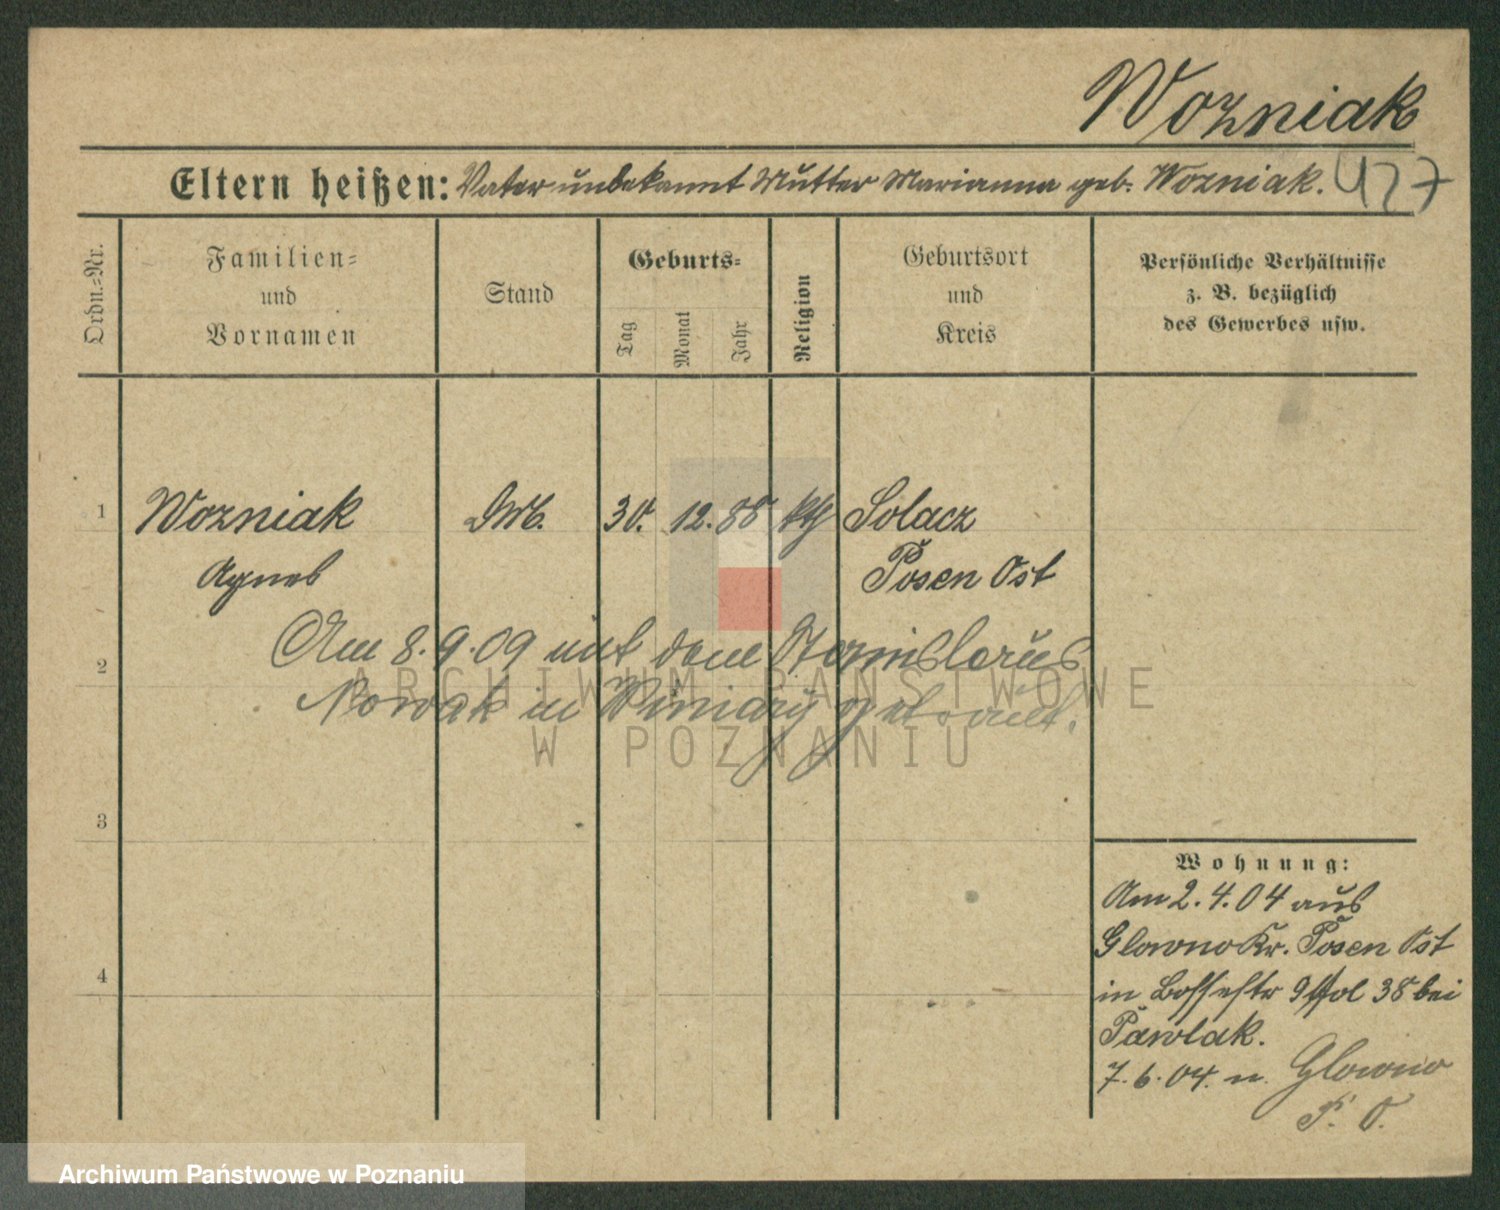 Wozniak
Eltern heißen: Vater unbekannt Mutter Marianna geb. Wozniak.
427
Ordn.=Nr.
Familien=
und
Vornamen
Stand
Geburts=
Tag
Monat
Jahr
Religion
Geburtsort
und
Kreis
Persönliche Verhältnisse
z. B. bezüglich
des Gewerbes usw.
1 Wozniak 30. 12. 88 kth Solacz
Agnes Posen Ost
Am 8.9.09 mit dem Stanislaus
2
Nowak in Winiary getraut.
ARCHIWUM PAŃSTWOWE
W POZNANIU
3
Wohnung:
Am 2.4.04 aus
Glowno Kr. Posen Ost
4
in 38 bei
Pawlak.
7.6.04. n. Glowno
P. O.
Archiwum Państwowe w Poznaniu